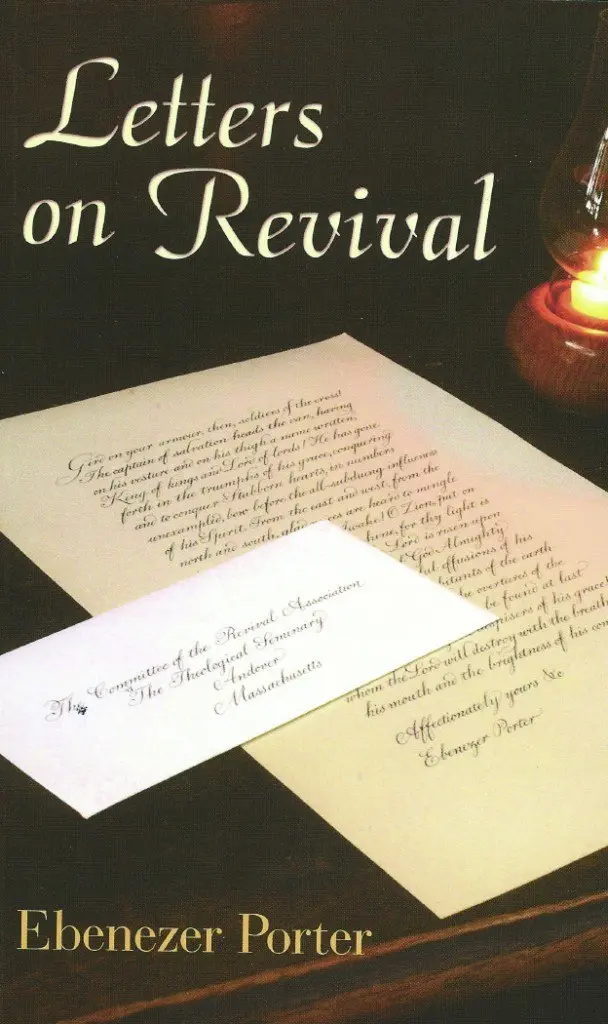 Letters
on Revival
Gird on your armour, then, soldiers of the cross!
The captain of salvation heads the van, having
on his vesture and on his thigh a name written,
King of kings and Lord of lords! He has gone
forth in the triumphs of his grace, conquering
and to conquer. Stubborn hearts, in numbers
unexampled, bow before the all-subduing influence
of his Spirit. From the east and west, from the
north and south, glad are heard to mingle
Awake! O Zion, put on
for thy light is
Lord is risen upon
God Almighty
effusions of his
of the earth
the overtures of the
be found at last
despisers of his grace
whom the Lord will destroy with the breath
his mouth and the brightness of his
Affectionately yours &c
Ebenezer Porter
The Committee of the Revival Association
The Theological Seminary
Andover
Massachusetts
Ebenezer Porter